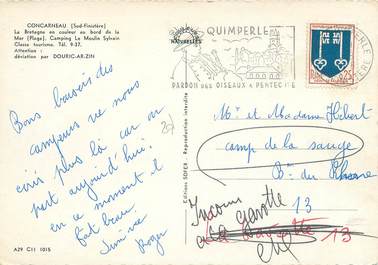 CONCARNEAU (Sud-Finistère)
La Bretagne en couleur au bord de la
Mer (Plage). Camping Le Moulin Sylvain
Classe tourisme. Tél. 9-37.
Attention :
déviation par DOURIC-AR-ZIN
Bons baisers des
campeurs ne nous
écris plus là car on
part aujourd'hui.
en ce moment il
fait beau.
Roger
A29 C11 1015
Editions SOFER - Reproduction interdite
QUIMPERLE
NATURELLES
PARDON DES OISEAUX A PENTECOTE
0,25
Mr et Madame Hébert
camp de la sauge
Bs du Rhône
Inconnu
à La Gavotte
La Gavotte 13